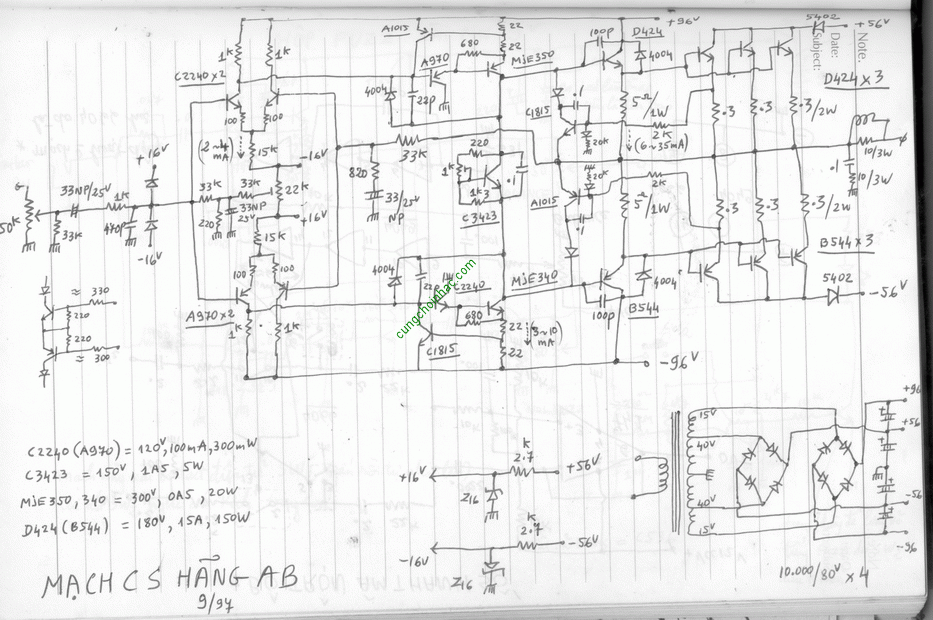 +96V
5402
+56V
Note.
Date:
Subject:
D424 × 3
A1015
22
22
680
A970
MJE350
100p
D424
4004
1K
1K
C2240×2
4004
22p
C1815
.1
5Ω/1W
2K
.3
.3
.3/2W
100
100
(2~4 mA)
15K
-16V
33K
20K
(6~35mA)
10/3W
.1
10/3W
+16V
820
220
1K
1K
.1
20K
2K
A1015
5Ω/1W
.3
.3
.3/2W
50K
33NP/25V
1K
33K
33K
22K
33/25V
NP
C3423
33K
470p
220
33NP
25V
+16V
-16V
15K
B544×3
100
100
4004
22p
C2240
MJE340
.1
4004
5402
-56V
≈ 330
220
220
≈ 300
A970×2
1K
1K
680
cungchoinhac.com
C1815
22
22
(3~10 mA)
100p
B544
-96V
C2240(A970) = 120V, 100mA, 300mW
C3423 = 150V, 1A5, 5W
MJE350, 340 = 300V, 0A5, 20W
D424(B544) = 180V, 15A, 150W
+16V
K
2.7
+56V
Z16
-16V
K
2.7
-56V
Z16
15V
40V
40V
15V
+96
+56
-56
-96
10.000/80V × 4
MẠCH CS HẠNG AB
9/97